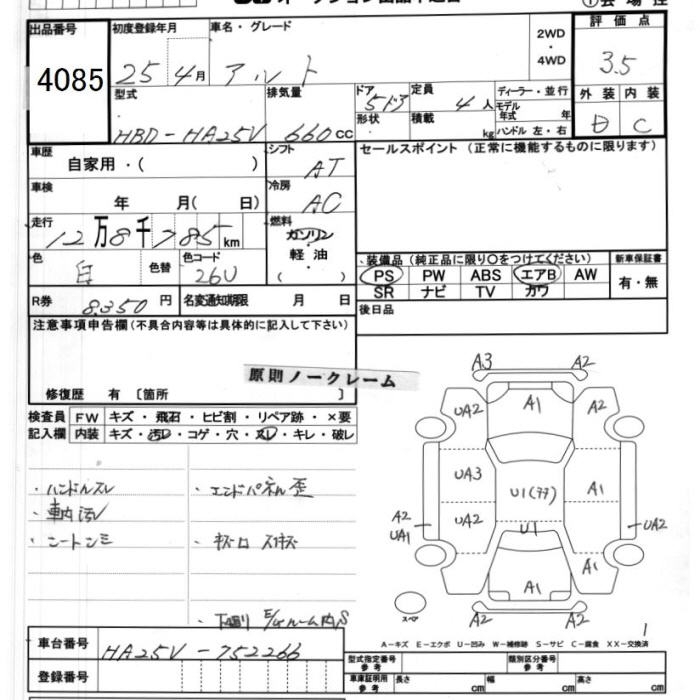 出品番号
4085
初度登録年月
25年4月
車名・グレード
アルト
2WD
・
4WD
評価点
3.5
型式
HBD-HA25V
排気量
660cc
ドア
5ドア
形状
定員
4人
積載
kg
ディーラー・並行
モデル年式 年
ハンドル 左・右
外装 内装
D C
車歴
自家用・( )
シフト
AT
セールスポイント (正常に機能するものに限ります)
車検
年 月( 日)
冷房
AC
走行
12万8千785km
燃料
ガソリン
軽油
・
色
白
色替
色コード
26U
装備品 (純正品に限り〇をつけてください)
PS PW ABS エアB AW
SR ナビ TV カワ
新車保証書
有・無
R券
8,350円
名変通知期限 月 日
後日品
注意事項申告欄(不具合内容等は具体的に記入して下さい)
原則ノークレーム
修復歴 有 〔箇所 〕
検査員 FW キズ・飛石・ヒビ割・リペア跡・×要
記入欄 内装 キズ・汚レ・コゲ・穴・スレ・キレ・破レ
・ハンドルスレ
・車内汚レ
・シートシミ
・エンドパネル歪
・キズロ スリキズ
・下廻り E/gルーム内S
A3 A2
UA2 A1 A2
UA3 U1(ヌケ) A1
A2 UA1 UA2 U1 UA2
A1 A1
A2 A2
スペア
1
A-キズ E-エクボ U-凹み W-補修跡 S-サビ C-腐食 XX-交換済
車台番号
HA25V-752266
登録番号
型式指定番号 参考
類別区分番号 参考
車庫証明用 参考
長さ cm
幅 cm
高さ cm